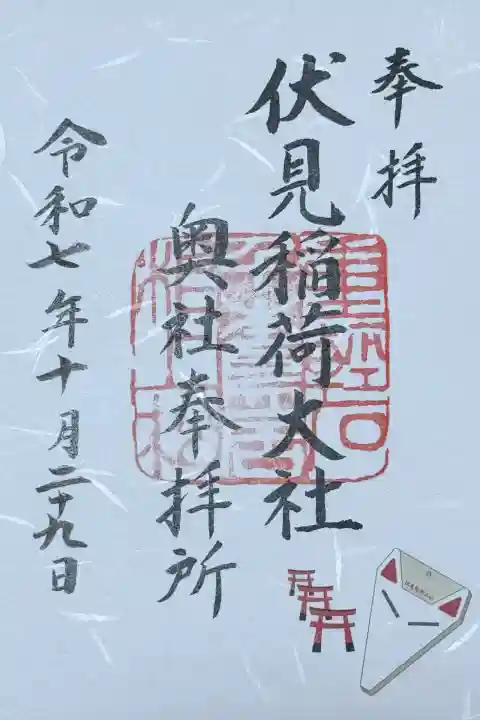 奉拝
伏見稲荷大社
奥社奉拝所
令和七年十月二十九日